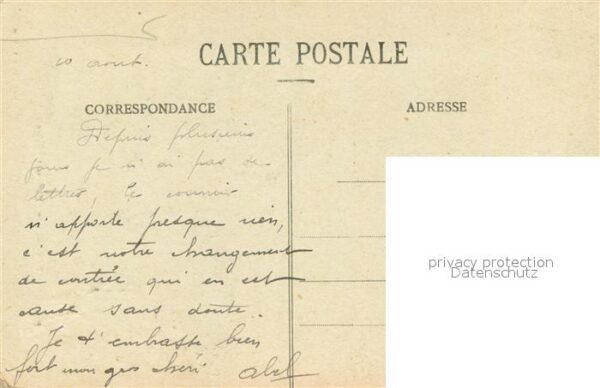 10 aout.
CARTE POSTALE
CORRESPONDANCE
ADRESSE
Depuis plusieurs
jours je n'ai pas de
lettres, le courrier
n'apporte presque rien,
c'est notre changement
de contrée qui en est
cause sans doute.
Je t'embrasse bien
fort mon gros chéri Abel
privacy protection
Datenschutz